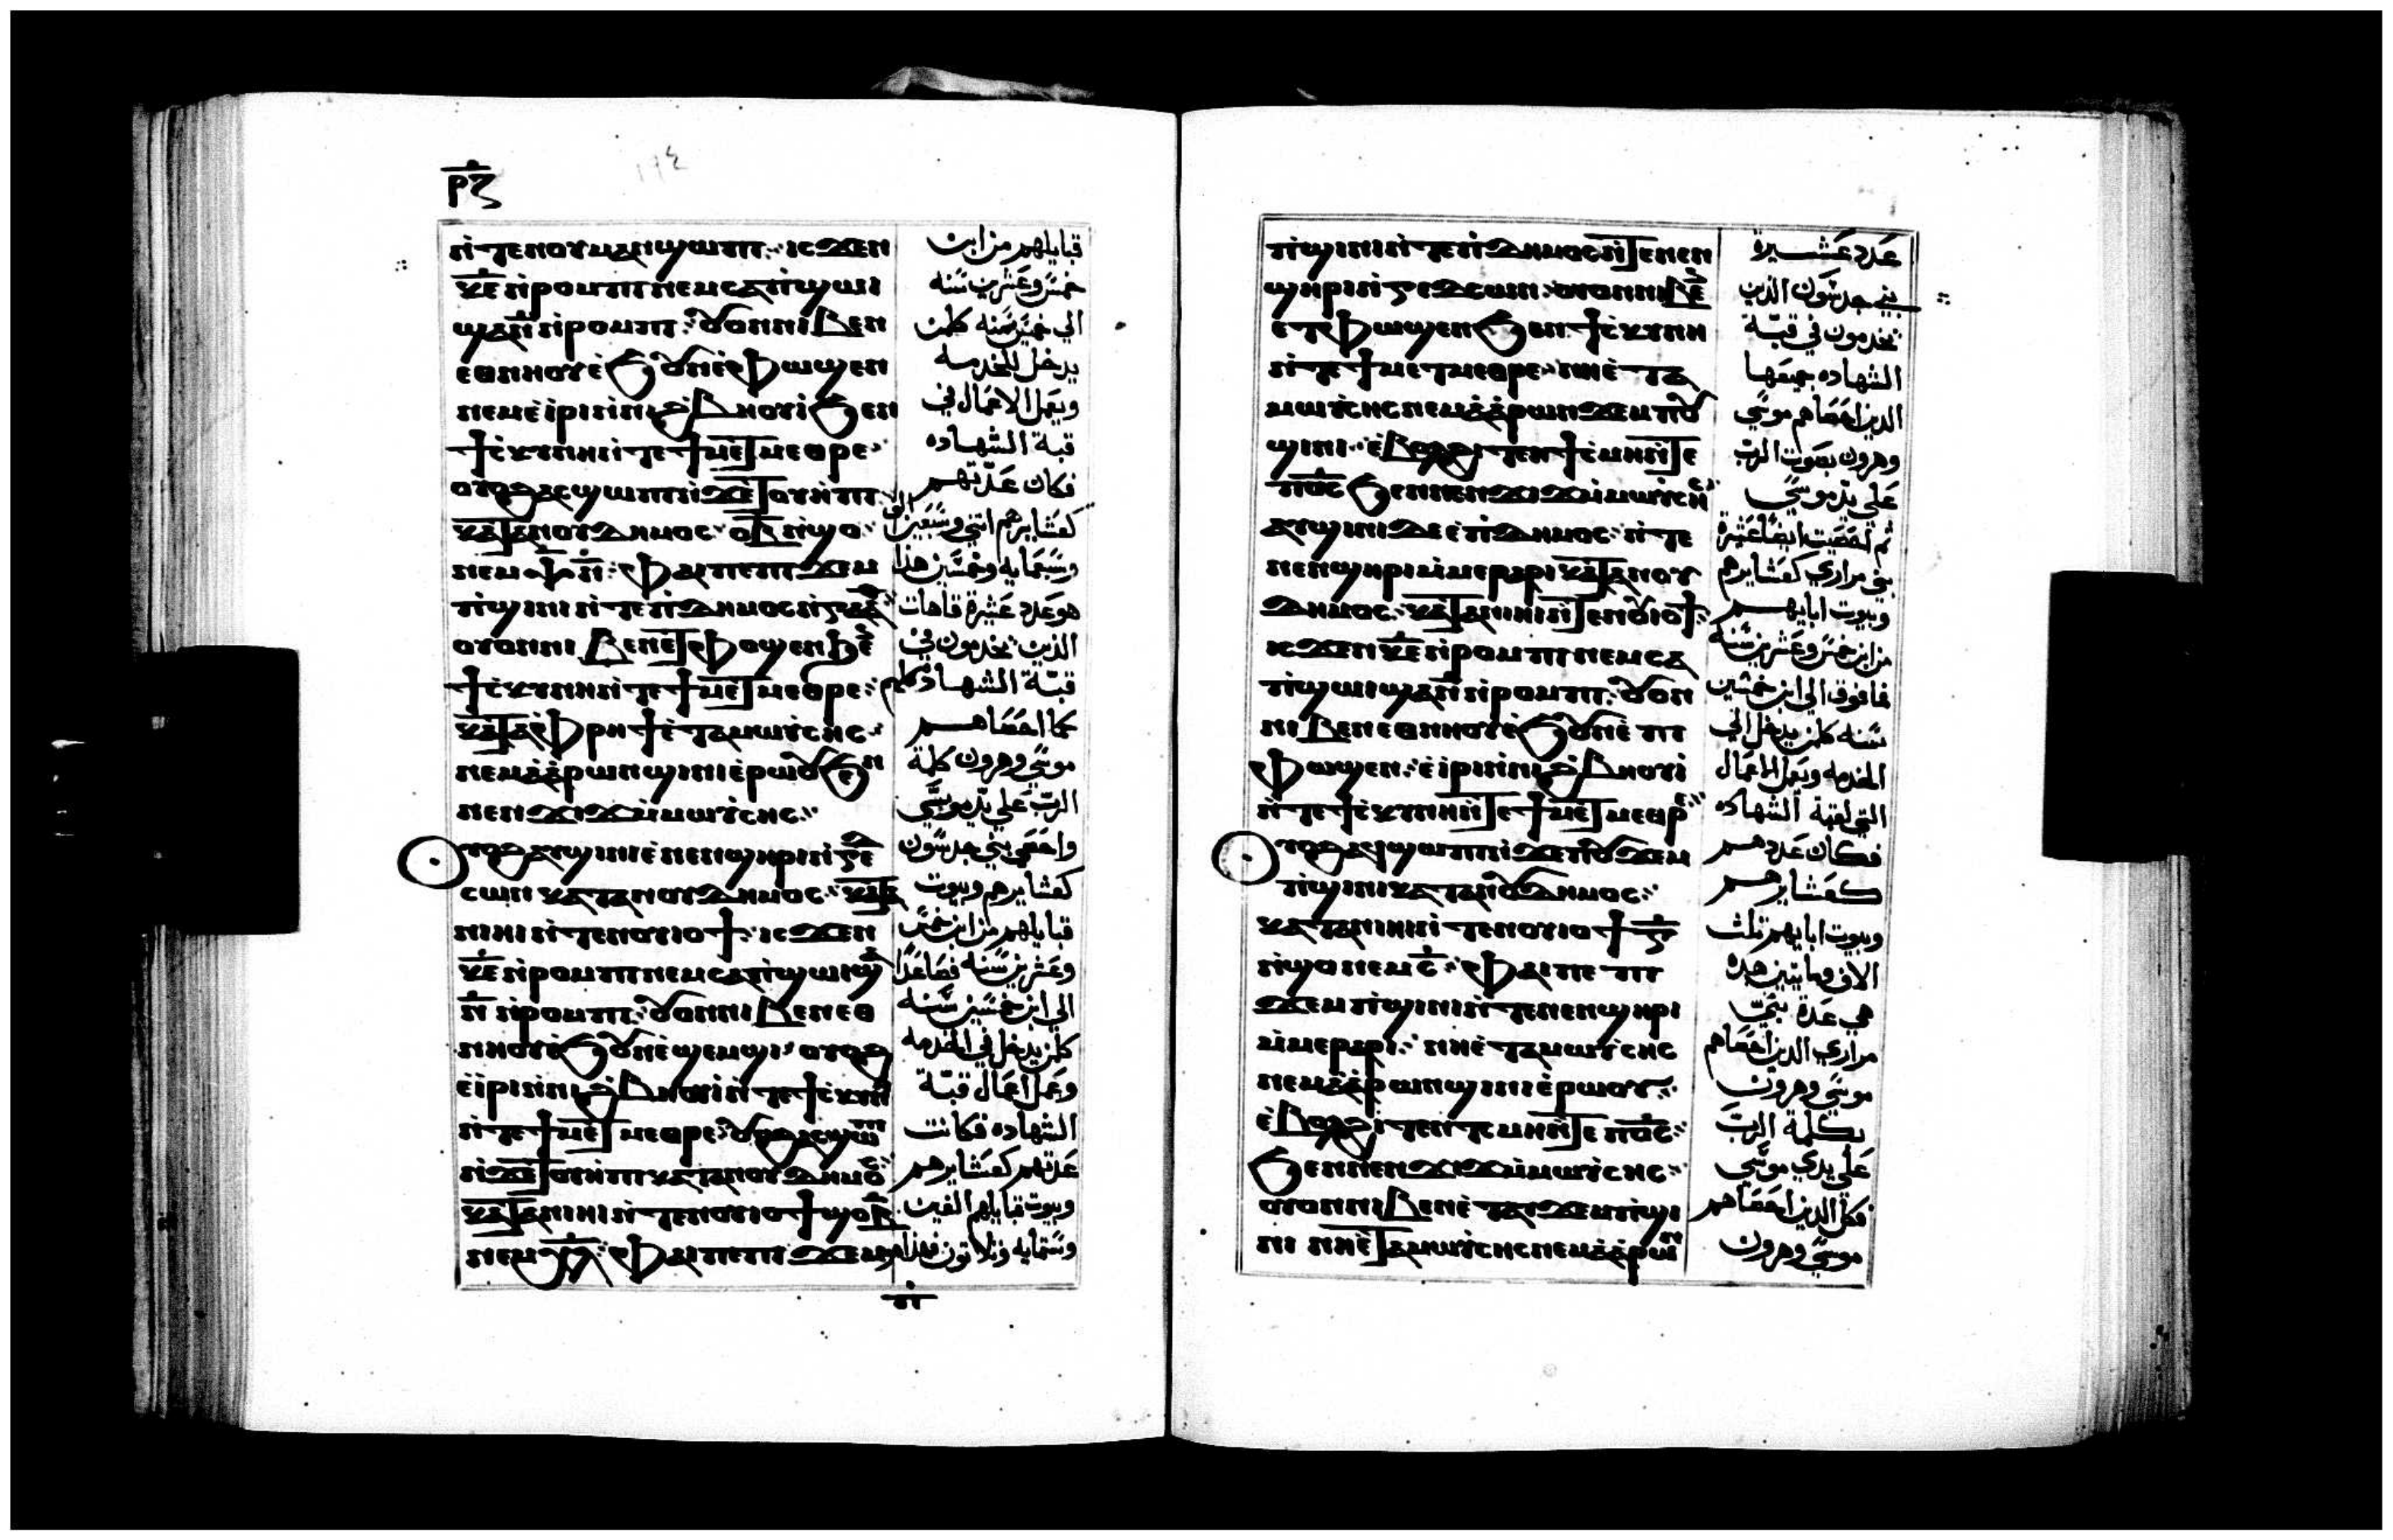 ⲣⲝ
١٦٤
ⲛ̀ⲧⲉⲛⲟⲩⲙⲁⲛϣⲱⲡⲓ ⲓⲥϫⲉⲛ
ⲕ̅ⲉ̅ ⲛ̀ⲣⲟⲙⲡⲓ ⲛⲉⲙ ⲥⲁⲡ̀ϣⲱⲓ
ϣⲁ ⲛ̅ ⲛ̀ⲣⲟⲙⲡⲓ ⲟⲩⲟⲛ ⲛⲓⲃⲉⲛ
ⲉⲑⲛⲏⲟⲩ ⲉ̀ϧⲟⲩⲛ ⲉ̀ⲫⲱϣⲉⲛ
ⲛⲉⲙ ⲉ̀ⲓⲣⲓ ⲛ̀ⲛⲓϩ̀ⲃⲏⲟⲩⲓ ϧⲉⲛ
ϯⲥ̀ⲕⲩⲛⲏ ⲛ̀ⲧⲉ ϯⲙⲉⲧⲙⲉⲑⲣⲉ
ⲟⲩⲟϩ ⲁⲥϣⲱⲡⲓ ⲛ̀ϫⲉ ⲧⲟⲩⲏ̀ⲡⲓ
ⲕⲁⲧⲁ ⲛⲟⲩⲇⲏⲙⲟⲥ ⲟ̅ⲃ̅ ⲛ̀ϣⲟ
ⲛⲉⲙ ⲯ̅ⲛ̅ ⲫⲁⲓ ⲡⲉ ⲡϫⲉⲙ
ⲡ̀ϣⲓⲛⲓ ⲛ̀ⲧⲉ ⲡ̀ⲇⲏⲙⲟⲥ ⲛ̀ⲕⲁⲁⲑ
ⲟⲩⲟⲛ ⲛⲓⲃⲉⲛ ⲉⲧⲫⲟϣⲉⲛ ϧⲉⲛ
ϯⲥ̀ⲕⲩⲛⲏ ⲛ̀ⲧⲉ ϯⲙⲉⲧⲙⲉⲑⲣⲉ
ⲕⲁⲧⲁ ⲫⲣⲏϯ ⲉ̀ⲧⲁ ⲙⲱⲩⲥⲏⲥ
ⲛⲉⲙ ⲁ̀ⲁ̀ⲣⲱⲛ ϣⲓⲛⲓ ⲉ̀ⲣⲱⲟⲩ ϧⲉⲛ
ⲛⲉⲛϫⲓϫ ⲙ̀ⲙⲱⲩⲥⲏⲥ
ⲟⲩⲟϩ ⲁⲩϣⲓⲛⲓ ⲉ̀ⲛⲉⲛϣⲏⲣⲓ ⲛ̀ⲅⲉⲇ
ⲥⲱⲛ ⲕⲁⲧⲁ ⲛⲟⲩⲇⲏⲙⲟⲥ ⲕⲁⲧⲁ
ⲛⲓⲏⲓ ⲛ̀ⲧⲉⲛⲟⲩⲓⲟϯ ⲓⲥϫⲉⲛ
ⲕ̅ⲉ̅ ⲛ̀ⲣⲟⲙⲡⲓ ⲛⲉⲙ ⲥⲁⲡ̀ϣⲱⲓ ϣⲁ
ⲛ̅ ⲛ̀ⲣⲟⲙⲡⲓ ⲟⲩⲟⲛ ⲛⲓⲃⲉⲛ ⲉⲑ
ⲛⲏⲟⲩ ⲉ̀ϧⲟⲩⲛ ⲉ̀ϣⲉⲙϣⲓ ⲟⲩⲟϩ
ⲉ̀ⲓⲣⲓ ⲛ̀ⲛⲓϩ̀ⲃⲏⲟⲩⲓ ⲛ̀ⲧⲉ ϯⲥ̀ⲕⲩⲛⲏ
ⲛ̀ⲧⲉ ϯⲙⲉⲧⲙⲉⲑⲣⲉ ⲟⲩⲟϩ ⲁⲥϣⲱⲡⲓ
ⲛ̀ϫⲉ ⲧⲟⲩⲏ̀ⲡⲓ ⲕⲁⲧⲁ ⲛⲟⲩⲇⲏⲙⲟⲥ
ⲕⲁⲧⲁ ⲛⲓⲏⲓ ⲛ̀ⲧⲉⲛⲟⲩⲓⲟϯ ϣⲟ ⲃ̅
ⲛⲉⲙ ⲭ̅ⲗ̅ ⲫⲁⲓ ⲡⲉ ⲡϫⲉⲙ
ⲡ̀
قبايلهم من ابن
خمس وعشرين سنه
الي خمسين سنه كلمن
يدخل للخدمه
ويعمل الاعمال في
قبة الشهاده
فكان عدتهم
كعشايرهم اثني وسبعين الف
وسبعمايه وخمسين هذا
هو عدد عشيرة قاهات
الذين يخدمون في
قبة الشهاده كلهم
كما احصاهم
موسي وهرون كلمة
الرب علي يد موسي
واحصي بني جدسون
كعشايرهم وبيوت
قبايلهم من ابن خمس
وعشرين سنه فصاعدا
الي ابن خمسين سنه
كلمن يدخل في الخدمه
وعمل اعمال قبة
الشهاده فكانت
عدتهم كعشايرهم
وبيوت قبايلهم الفين
وستمايه وثلاثون فهذا
ⲡ̀ϣⲓⲛⲓ ⲛ̀ⲧⲉ ⲡ̀ⲇⲏⲙⲟⲥ ⲛ̀ⲧⲉ ⲛⲉⲛ
ϣⲏⲣⲓ ⲛ̀ⲅⲉⲇⲥⲱⲛ ⲟⲩⲟⲛ ⲛⲓⲃⲉⲛ
ⲉⲧⲫⲱϣⲉⲛ ϧⲉⲛ ϯⲥ̀ⲕⲩⲛⲏ
ⲛ̀ⲧⲉ ϯⲙⲉⲧⲙⲉⲑⲣⲉ ⲛⲏ ⲉ̀ⲧⲁ
ⲙⲱⲩⲥⲏⲥ ⲛⲉⲙ ⲁ̀ⲁ̀ⲣⲱⲛ ϫⲉⲙ ⲡⲟⲩ
ϣⲓⲛⲓ ⲉ̀ⲃⲟⲗϩⲓⲧⲉⲛ ϯⲥ̀ⲙⲏ ⲛ̀ⲧⲉ
ⲡ̅ⲟ̅ⲥ̅ ϧⲉⲛ ⲛⲉⲛϫⲓϫ ⲙ̀ⲙⲱⲩⲥⲏⲥ
ⲁⲩϣⲓⲛⲓ ⲇⲉ ⲉ̀ⲡ̀ⲇⲏⲙⲟⲥ ⲛ̀ⲧⲉ
ⲛⲉⲛϣⲏⲣⲓ ⲙ̀ⲙⲉⲣⲁⲣⲓ ⲕⲁⲧⲁ ⲛⲟⲩ
ⲇⲏⲙⲟⲥ ⲕⲁⲧⲁ ⲛⲓⲏⲓ ⲛ̀ⲧⲉⲛⲟⲩⲓⲟϯ
ⲓⲥϫⲉⲛ ⲕ̅ⲉ̅ ⲛ̀ⲣⲟⲙⲡⲓ ⲛⲉⲙ ⲥⲁ
ⲡ̀ϣⲱⲓ ϣⲁ ⲛ̅ ⲛ̀ⲣⲟⲙⲡⲓ ⲟⲩⲟⲛ
ⲛⲓⲃⲉⲛ ⲉⲑⲛⲏⲟⲩ ⲉ̀ϧⲟⲩⲛ ⲉ̀ⲡⲓ
ⲫⲱϣⲉⲛ ⲉ̀ⲓⲣⲓ ⲛ̀ⲛⲓϩ̀ⲃⲏⲟⲩⲓ
ⲛ̀ⲧⲉ ϯⲥ̀ⲕⲩⲛⲏ ⲛ̀ⲧⲉ ϯⲙⲉⲧⲙⲉⲑⲣⲉ
ⲟⲩⲟϩ ⲁϥϣⲱⲡⲓ ⲛ̀ϫⲉ ⲡⲟⲩϫⲉⲙ
ⲡ̀ϣⲓⲛⲓ ⲕⲁⲧⲁ ⲛⲟⲩⲇⲏⲙⲟⲥ
ⲕⲁⲧⲁ ⲛⲓⲏⲓ ⲛ̀ⲧⲉⲛⲟⲩⲓⲟϯ ⲅ̅
ⲛ̀ϣⲟ ⲛⲉⲙ ⲥ̅ ⲫⲁⲓ ⲡⲉ ⲡⲓ
ϫⲉⲙ ⲡ̀ϣⲓⲛⲓ ⲛ̀ⲧⲉ ⲛⲉⲛϣⲏⲣⲓ
ⲙ̀ⲙⲉⲣⲁⲣⲓ ⲛⲏ ⲉ̀ⲧⲁ ⲙⲱⲩⲥⲏⲥ
ⲛⲉⲙ ⲁ̀ⲁ̀ⲣⲱⲛ ϣⲓⲛⲓ ⲉ̀ⲣⲱⲟⲩ
ⲉ̀ⲃⲟⲗϩⲓⲧⲉⲛ ⲧⲥⲙⲏ ⲛ̀ⲧⲉ ⲡ̅ⲟ̅ⲥ̅
ϧⲉⲛ ⲛⲉⲛϫⲓϫ ⲙ̀ⲙⲱⲩⲥⲏⲥ
ⲟⲩⲟⲛ ⲛⲓⲃⲉⲛ ⲉ̀ⲧⲁⲩϫⲉⲙ ⲡ̀ϣⲓ
ⲛⲓ ⲛⲏ ⲉ̀ⲧⲁ ⲙⲱⲩⲥⲏⲥ ⲛⲉⲙ ⲁ̀ⲁ̀ⲣⲱⲛ
عدد عشيرة
بني جدسون الذين
يخدمون في قبة
الشهاده جميعها
الذين احصاهم موسي
وهرون بصوت الرب
علي يد موسي
ثم احصيت ايضا عشيرة
بني مراري كعشايرهم
وبيوت ابايهم
من ابن خمس وعشرين سنه
فما فوق الي ابن خمسين
سنه كلمن يدخل الي
الخدمه ويعمل الاعمال
التي لقبة الشهاده
فكان عددهم
كعشايرهم
وبيوت ابايهم ثلث
الاف ومايتين هذه
هي عدة بني
مراري الذين احصاهم
موسي وهرون
بكلمة الرب
علي يدي موسي
فكل الذين احصاهم
موسي وهرون